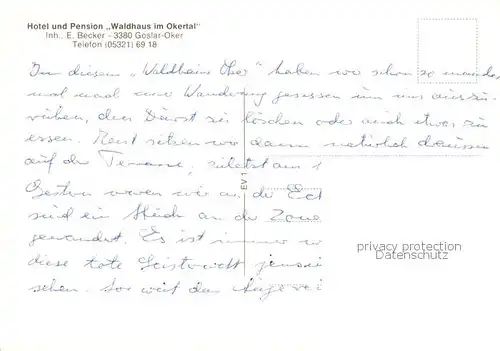 Hotel und Pension „Waldhaus im Okertal"
Inh., E. Becker - 3380 Goslar-Oker
Telefon (05321) 69 18
In diesem „Waldhaus Oker" haben wir schon so manches
mal nach eine Wanderung gesessen um uns auszu-
ruhen, den Durst zu löschen oder auch etwas zu
essen. sitzen wir dann natürlich draussen
auf der Terrasse, zuletzt am 1
Gestern waren wir an der Eck
sind ein Stück an der Zone
gewandert. Es ist immer w
diese tote Geisterwelt jensei
sehen. So weit das Auge rei
EV 1
privacy protection
Datenschutz